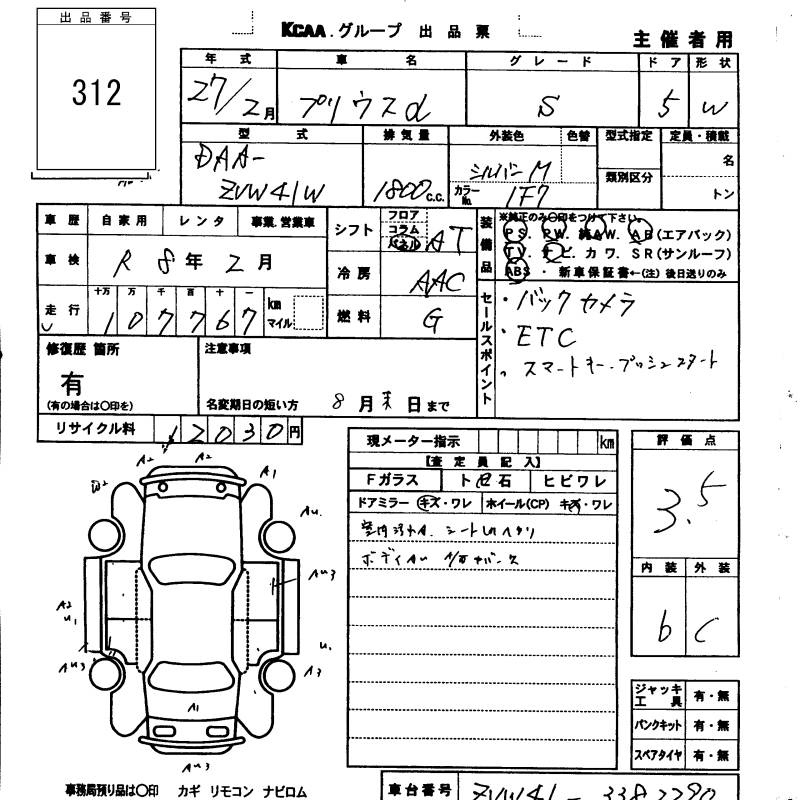 出品番号
312
KCAA.グループ 出品票
主催者用
年式 車名 グレード ドア 形状
27/2月 プリウスα S 5 W
型式 排気量 外装色 色替 型式指定 定員・積載
DAA-
ZVW41W 1800c.c. シルバーM
カラーNo. 1F7
類別区分
名
トン
車歴 自家用 レンタ 事業.営業車
車検 R8年2月
走行 十万 万 千 百 十 一
107767 km マイル
シフト フロア コラム パネル AT
冷房 AAC
燃料 G
装備品
※純正のみ〇印をつけて下さい。
PS. PW. 純AW. AB(エアバック)
TV. ナビ. カワ. SR(サンルーフ)
ABS・新車保証書←(注)後日送りのみ
セールスポイント
・バックカメラ
・ETC
、スマートキー.プッシュスタート
修復歴 箇所
有
(有の場合は〇印を)
注意事項
名変期日の短い方 8月末日まで
リサイクル料 12030円
現メーター指示 km
【査定員記入】
Fガラス ト日石 ヒビワレ
ドアミラー キズ・ワレ ホイール(CP) キズ・ワレ
評価点
3.5
内装 外装
b C
A2 A2 A1
AU.
AU3
A2
U1
AU3
U.
A3
A1
AU3
ジャッキ工具 有・無
パンクキット 有・無
スペアタイヤ 有・無
事務局預り品は〇印 カギ リモコン ナビロム
車台番号 ZVW41-3382290